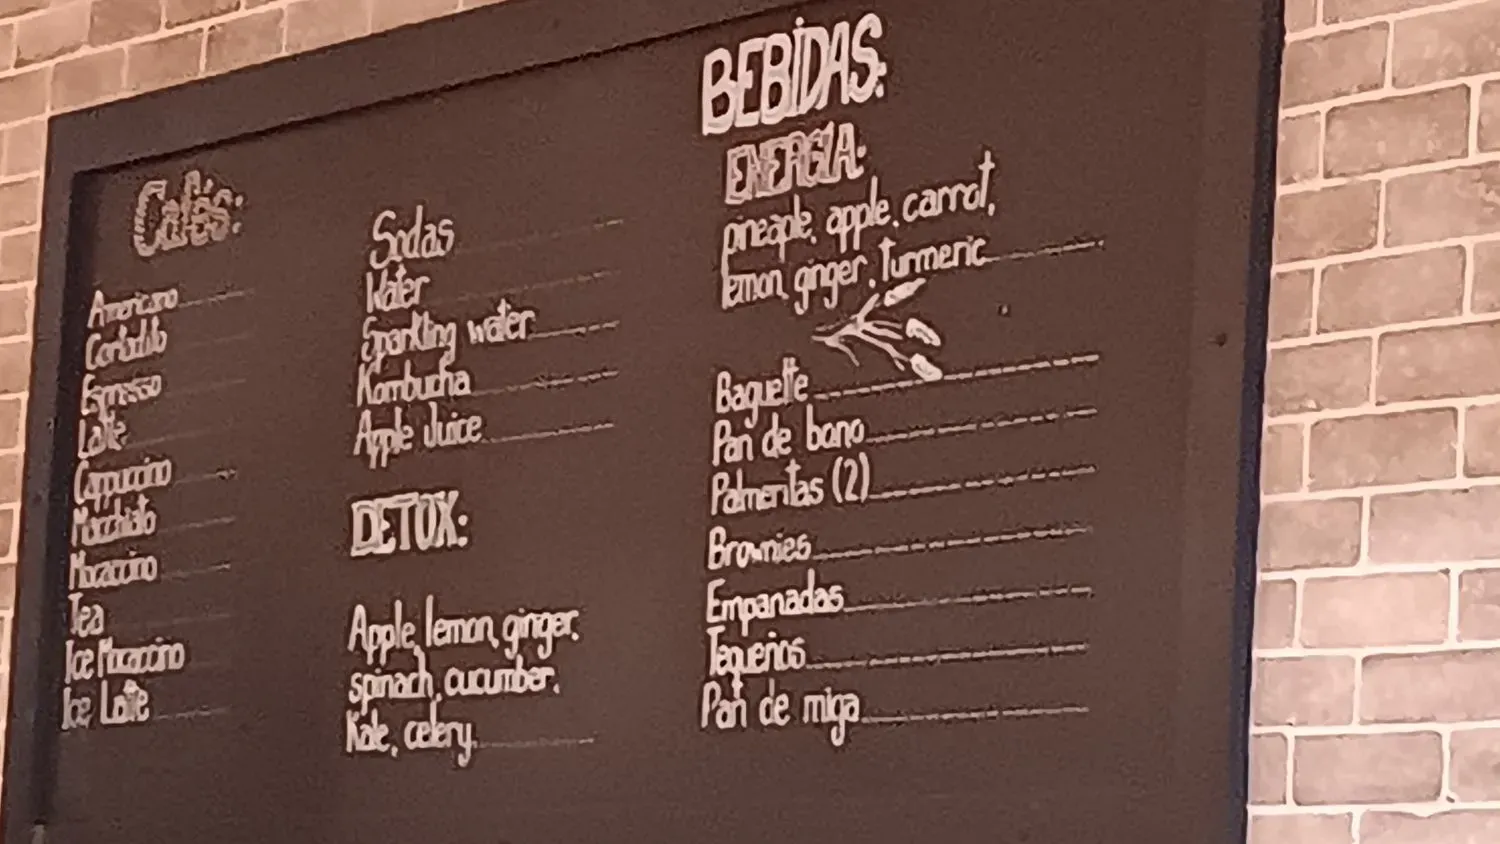 Cafés:
Americano
Cortadito
Espresso
Latte
Cappuccino
Macchiato
Mocaccino
Tea
Ice Mocaccino
Ice Latte
Sodas
Water
Sparkling water
Kombucha
Apple Juice
DETOX:
Apple, lemon, ginger,
spinach, cucumber,
Kale, celery
BEBIDAS:
ENERGIA:
pineapple, apple, carrot,
lemon, ginger, turmeric
Baguette
Pan de bono
Palmeritas (2)
Brownies
Empanadas
Tequeños
Pan de miga